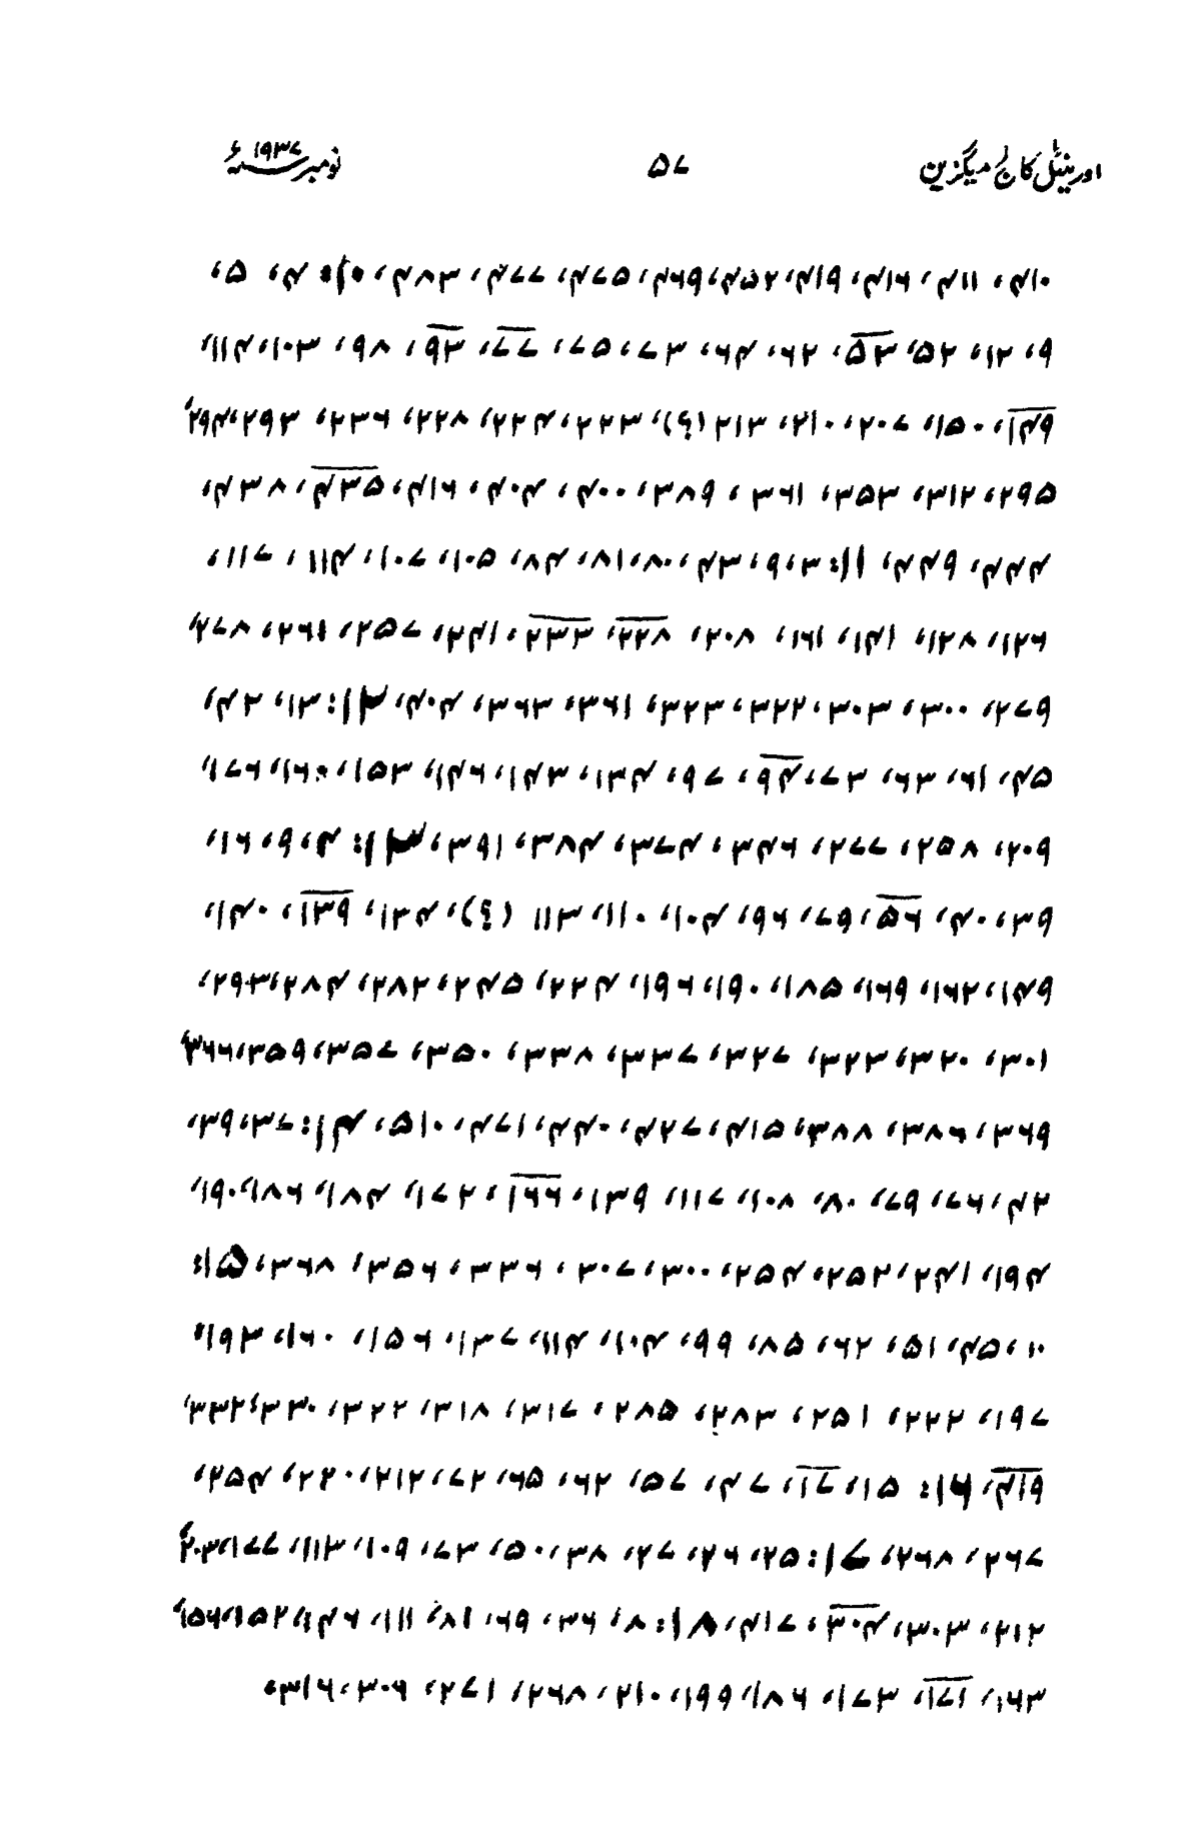 اورینٹل کالج میگزین ۵۷ نومبر ۱۹۳۷ء
۴۱۰، ۴۱۱، ۴۱۶، ۴۱۹، ۴۵۲، ۴۶۹، ۴۷۵، ۴۷۷، ۴۸۳، ۱۰: ۴، ۵،
۹، ۱۲، ۵۲، ۵۳، ۶۲، ۶۴، ۷۳، ۷۵، ۷۷، ۹۳، ۹۸، ۱۰۳، ۱۱۴،
۱۴۹، ۱۵۰، ۲۰۷، ۲۱۰، ۲۱۳ (؟)، ۲۲۳، ۲۲۴، ۲۲۸، ۲۳۶، ۲۹۳، ۲۹۴،
۲۹۵، ۳۱۲، ۳۵۳، ۳۶۱، ۳۷۹، ۴۰۰، ۴۰۴، ۴۱۶، ۴۳۵، ۴۳۸،
۴۴۴، ۴۴۹، ۱۱: ۳، ۹، ۴۳، ۸۰، ۸۱، ۸۴، ۱۰۵، ۱۰۷، ۱۱۴، ۱۱۷،
۱۲۶، ۱۲۸، ۱۴۱، ۱۶۱، ۲۰۸، ۲۲۸، ۲۳۳، ۲۴۱، ۲۵۷، ۲۶۱، ۲۷۸،
۲۷۹، ۳۰۰، ۳۰۳، ۳۲۲، ۳۲۳، ۳۶۱، ۳۶۳، ۴۰۴، ۱۲: ۱۳، ۴۲،
۴۵، ۶۱، ۶۳، ۷۳، ۹۴، ۹۷، ۱۳۴، ۱۴۳، ۱۴۶، ۱۵۳، ۱۶۰، ۱۷۶،
۲۰۹، ۲۵۸، ۲۷۷، ۳۴۶، ۳۷۴، ۳۸۴، ۳۹۱، ۱۳: ۴، ۹، ۱۶،
۳۹، ۴۰، ۵۶، ۷۹، ۹۶، ۱۰۴، ۱۱۰، ۱۱۳ (؟)، ۱۲۴، ۱۳۹، ۱۴۰،
۱۴۹، ۱۶۲، ۱۶۹، ۱۸۵، ۱۹۰، ۱۹۶، ۲۲۴، ۲۴۵، ۲۸۲، ۲۸۴، ۲۹۳،
۳۰۱، ۳۲۰، ۳۲۳، ۳۲۷، ۳۳۷، ۳۳۸، ۳۵۰، ۳۵۷، ۳۵۹، ۳۶۶،
۳۶۹، ۳۸۶، ۳۸۸، ۴۱۵، ۴۲۷، ۴۴۰، ۴۷۱، ۵۱۰، ۱۴: ۳۷، ۳۹،
۴۲، ۷۶، ۷۹، ۸۰، ۱۰۸، ۱۱۷، ۱۳۹، ۱۶۶، ۱۷۲، ۱۸۴، ۱۸۶، ۱۹۰،
۱۹۴، ۲۴۱، ۲۵۲، ۲۵۴، ۳۰۰، ۳۰۷، ۳۳۶، ۳۵۶، ۳۶۸، ۱۵:
۱۰، ۴۵، ۵۱، ۶۲، ۸۵، ۹۹، ۱۰۴، ۱۱۴، ۱۳۷، ۱۵۶، ۱۶۰، ۱۹۳،
۱۹۷، ۲۲۲، ۲۵۱، ۲۸۳، ۲۸۵، ۳۱۷، ۳۱۸، ۳۲۲، ۳۳۰، ۳۳۲،
۴۱۹، ۱۶: ۱۵، ۱۷، ۴۷، ۵۷، ۶۲، ۶۵، ۷۲، ۲۱۲، ۲۲۰، ۲۵۴،
۲۶۷، ۲۶۸، ۱۷: ۲۵، ۲۶، ۲۷، ۳۸، ۵۰، ۷۳، ۱۰۹، ۱۱۳، ۱۷۷، ۲۰۳،
۲۱۲، ۳۰۳، ۳۰۴، ۴۱۷، ۱۸: ۸، ۳۶، ۶۹، ۸۱، ۱۱۱، ۱۴۶، ۱۵۲، ۱۵۶،
۱۶۳، ۱۷۱، ۱۷۳، ۱۸۶، ۱۹۹، ۲۱۰، ۲۶۸، ۲۷۱، ۳۰۶، ۳۱۶،